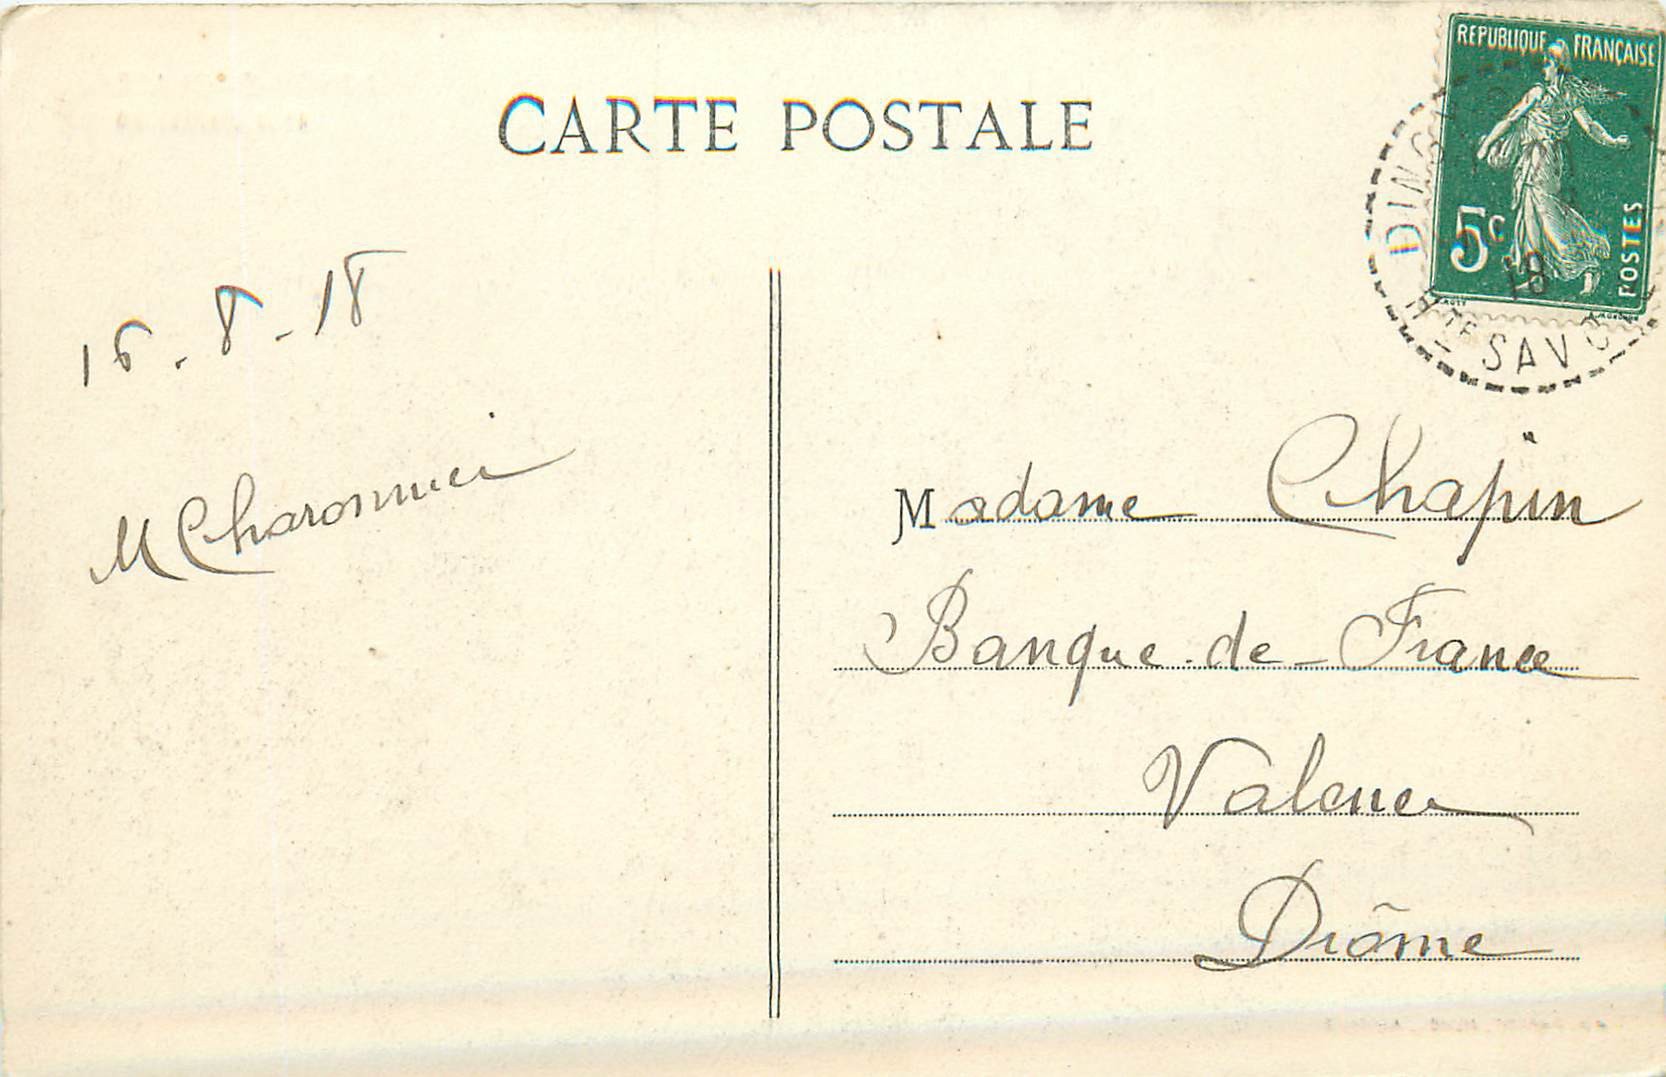 CARTE POSTALE
REPUBLIQUE FRANÇAISE
5c
POSTES
18
Hte SAVOIE
16-8-18
M Charonnier
Madame Chapin
Banque de France
Valence
Drôme